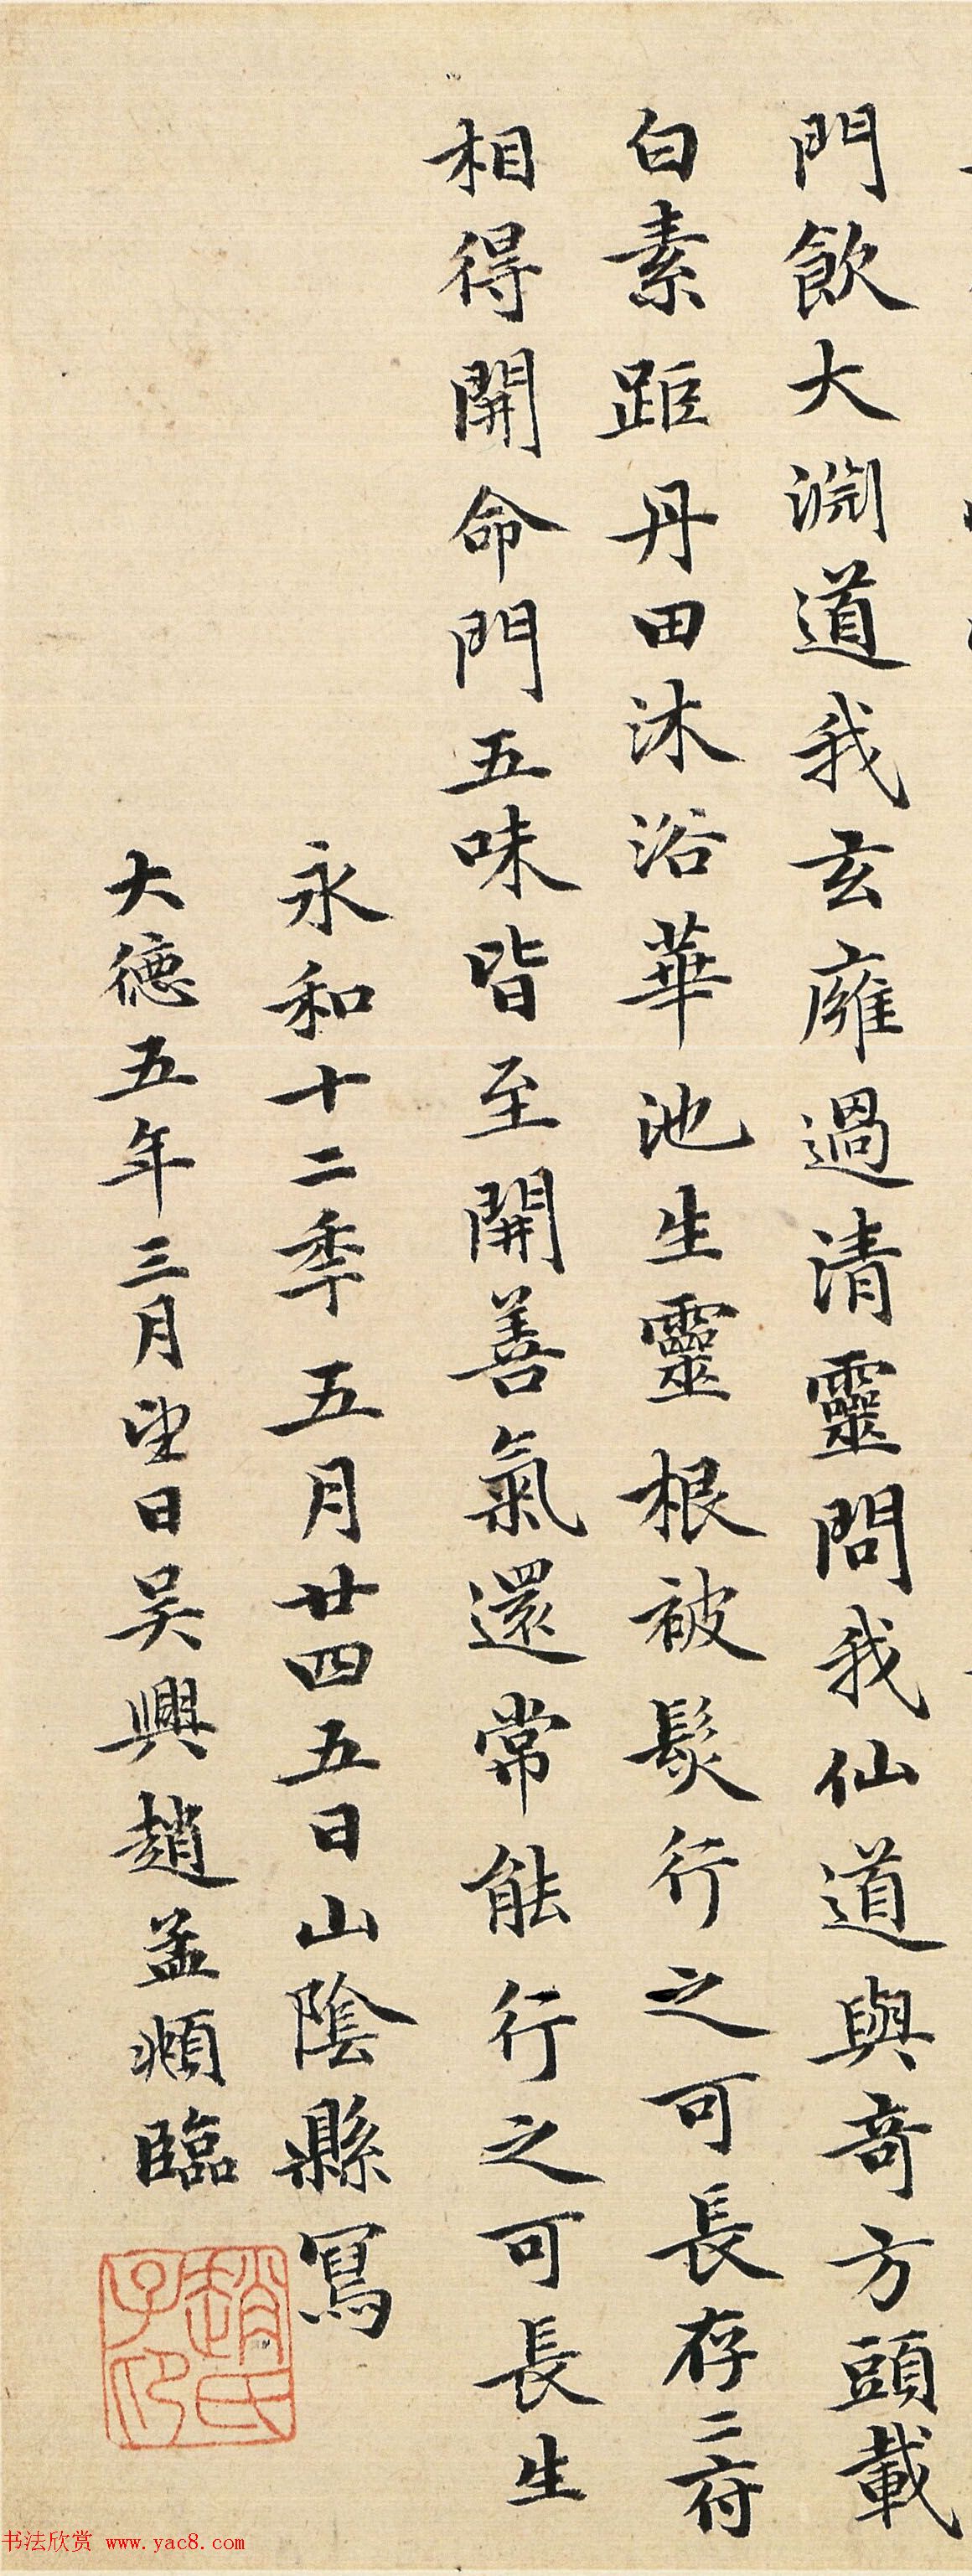 門飲大渊道我玄廱過清靈問我仙道與奇方頭載
白素距丹田沐浴華池生靈根被髮行之可長存二府
相得開命門五味皆至開善氣還常能行之可長生
永和十二季五月廿四五日山陰縣寫
大德五年三月望日吴興趙孟頫臨
趙氏子印
书法欣赏 www.yac8.com